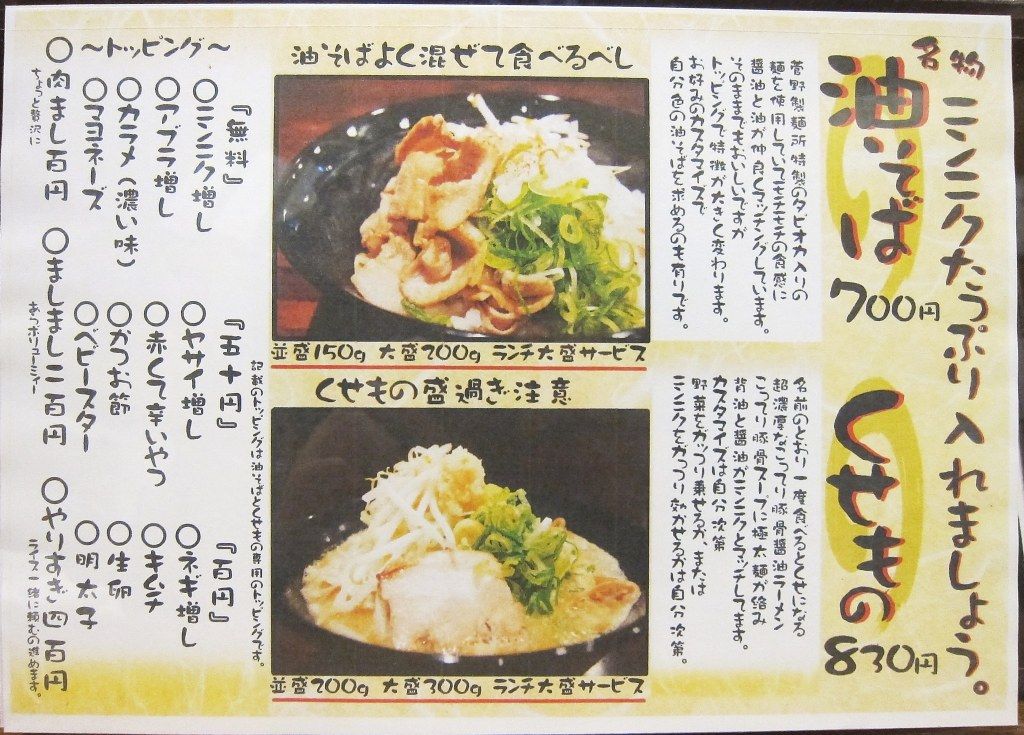 名物
ニンニクたっぷり入れましょう。
油そば 700円
くせもの 830円
菅野製麺所特製のタピオカ入りの
麺を使用していてモチモチの食感に
醤油と油が仲良くマッチングしています。
そのままでもおいしいですが
トッピングで特徴が大きく変わります。
お好みのカスタマイズで
自分色の油そばを求めるのも有りです。
名前のとおり一度食べるとくせになる
超濃厚なこってり豚骨醤油ラーメン
こってり豚骨スープに極太麺が絡み
背油と醤油がニンニクとマッチしてます。
カスタマイズは自分次第
野菜をガッツリ乗せるか、または
ニンニクをガッツリ効かせるかは自分次第。
油そばよく混ぜて食べるべし
並盛150g 大盛200g ランチ大盛サービス
くせもの盛過ぎ注意
並盛200g 大盛300g ランチ大盛サービス
記載のトッピングは油そばとくせもの専用のトッピングです。
〜トッピング〜
『無料』
○ニンニク増し
○アブラ増し
○カラメ(濃い味)
○マヨネーズ
『五十円』
○ヤサイ増し
○赤くて辛いやつ
○かつお節
○ベビースター
『百円』
○ネギ増し
○キムチ
○生卵
○明太子
○肉まし百円
ちょっと贅沢に
○ましまし二百円
あっボリューミィー
○やりすぎ四百円
ライス一緒に頼むの進めます。